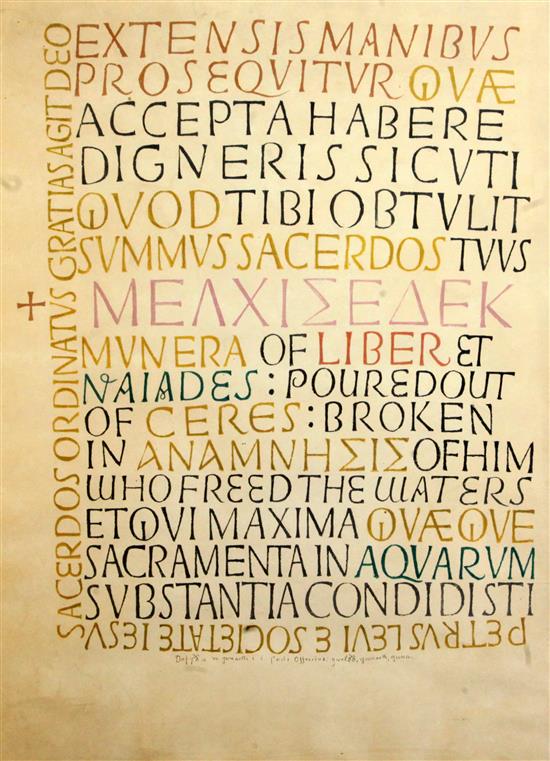 EXTENSIS MANIBVS
PROSEQVITVR QVÆ
ACCEPTA HABERE
DIGNERIS SICVTI
QVOD TIBI OBTVLIT
SVMMVS SACERDOS TVVS
ΜΕΛΧΙΣΕΔΕΚ
MVNERA OF LIBER ET
NAIADES : POURED OUT
OF CERES : BROKEN
IN ΑΝΑΜΝΗΣΙΣ OF HIM
WHO FREED THE WATERS
ET QVI MAXIMA QVÆQVE
SACRAMENTA IN AQVARVM
SVBSTANTIA CONDIDISTI
PETRVS LEVI E SOCIETATE IESVS
SACERDOS ORDINATVS GRATIAS AGIT DEO